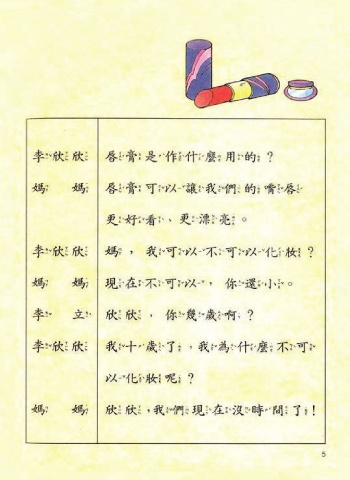 李欣欣 唇膏是作什麼用的？
媽媽 唇膏可以讓我們的嘴唇
更好看、更漂亮。
李欣欣 媽，我可以不可以化妝？
媽媽 現在不可以，你還小。
李立 欣欣，你幾歲啊？
李欣欣 我十歲了，我為什麼不可
以化妝呢？
媽媽 欣欣，我們現在沒時間了！
5